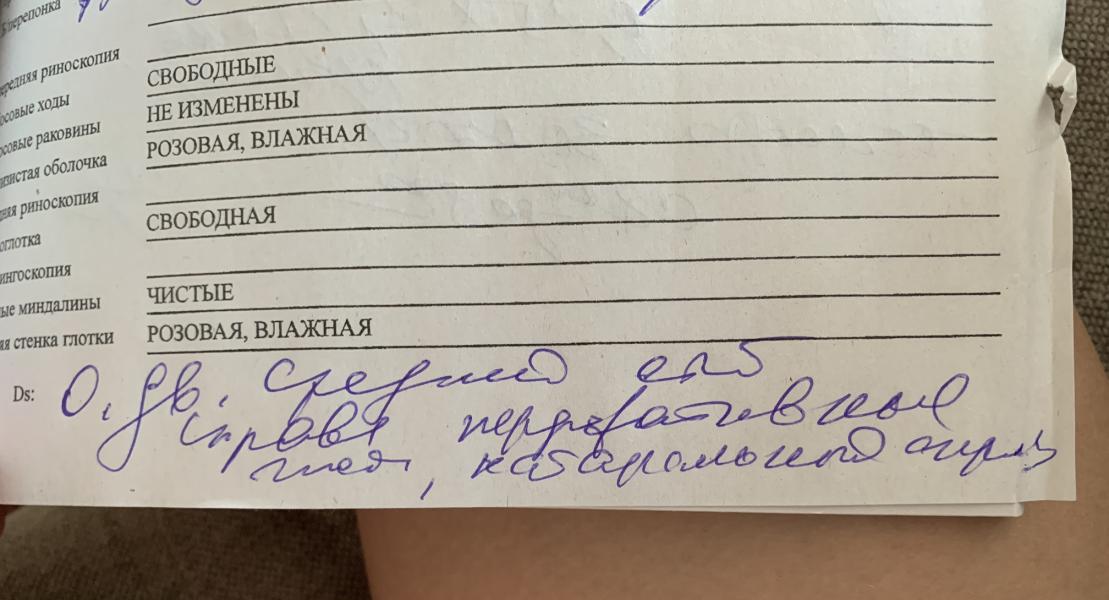 перепонка
ередняя риноскопия
осовые ходы СВОБОДНЫЕ
осовые раковины НЕ ИЗМЕНЕНЫ
изистая оболочка РОЗОВАЯ, ВЛАЖНАЯ
няя риноскопия
оглотка СВОБОДНАЯ
ингоскопия
ые миндалины ЧИСТЫЕ
яя стенка глотки РОЗОВАЯ, ВЛАЖНАЯ
Ds: О. дв. средний отит
справа перфоративный
гной, катаральный слева